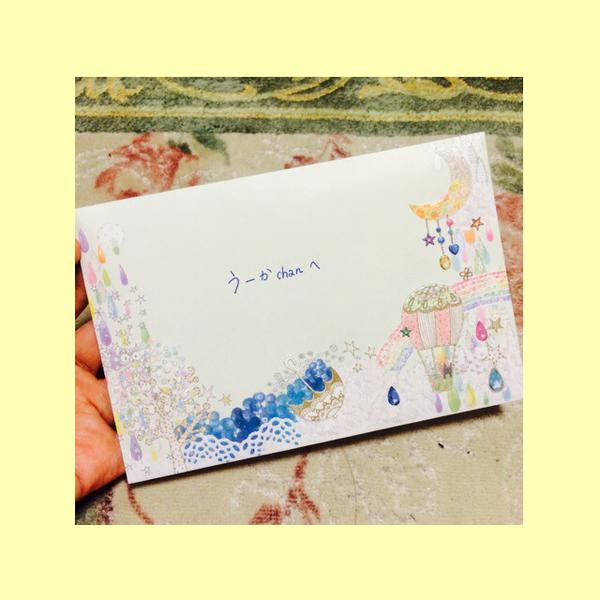 うーかchanへ